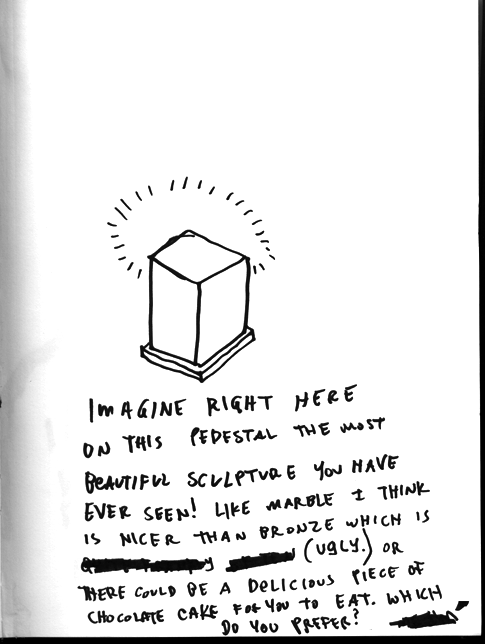 IMAGINE RIGHT HERE
ON THIS PEDESTAL THE MOST
BEAUTIFUL SCULPTURE YOU HAVE
EVER SEEN! LIKE MARBLE I THINK
IS NICER THAN BRONZE WHICH IS
(UGLY.) OR
THERE COULD BE A DELICIOUS PIECE OF
CHOCOLATE CAKE FOR YOU TO EAT. WHICH
DO YOU PREFER?